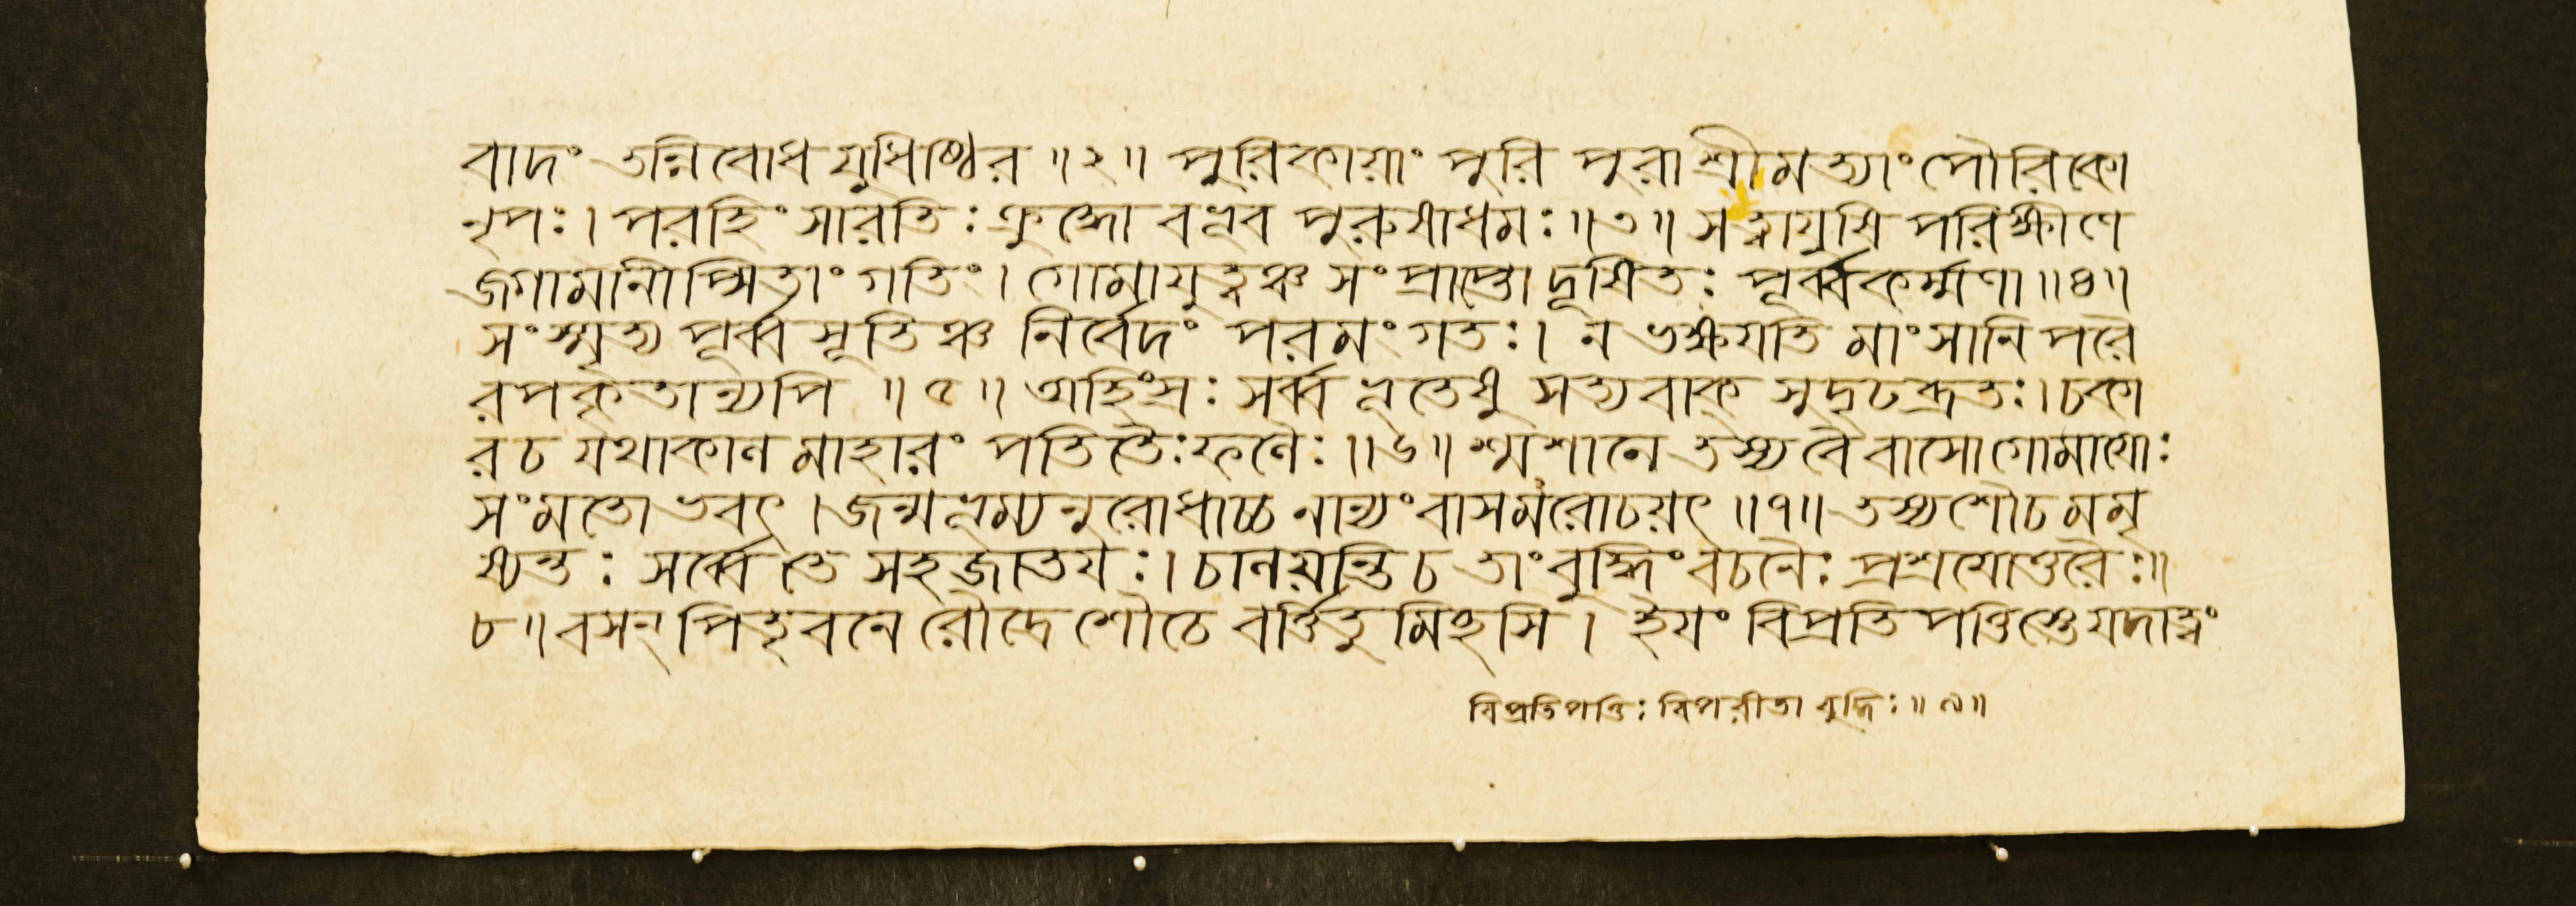 বাদং তন্নিবোধ যুধিষ্ঠির ॥২॥ পুরিকায়াং পুরি পুরা শ্রীমত্যাং পৌরিকো
নৃপঃ। পরহিংসারতিঃ ক্রুদ্ধো বভূব পুরুষাধমঃ॥৩॥ স ত্বায়ুষি পরিক্ষীণে
জগামানীপ্সিতাং গতিং। গোমায়ুত্বঞ্চ সংপ্রাপ্তো দূষিতঃ পূর্ব্বকর্ম্মণা॥৪॥
সংস্মৃত্য পূর্ব্বভূতিঞ্চ নির্বেদং পরমং গতঃ। ন ভক্ষয়তি মাংসানি পরৈ
রপহৃতান্যপি ॥৫॥ অহিংস্রঃ সর্ব্বভূতেষু সত্যবাক্ সুদৃঢব্রতঃ। চকা
র চ যথাকাল মাহারং পতিতৈঃ ফলৈঃ॥৬॥ শ্মশানে তস্য বৈ বাসো গোমায়োঃ
সংমতো ভবৎ। জন্মভূম্যনুরোধাচ্চ নান্যং বাসমরোচয়ৎ॥৭॥ তস্য শৌচমমৃ
ষ্যন্তঃ সর্ব্বে তে সহজাতয়ঃ। চালয়ন্তি চ তাং বুদ্ধিং বচনৈঃ প্রশ্রয়োত্তরৈঃ॥
৮॥ বসন্ পিতৃবনে রৌদ্রে শৌচে বর্ত্তিতুমিচ্ছসি। ইয়ং বিপ্রতিপত্তিস্তে যদা ত্বং
বিপ্রতিপত্তিঃ বিপরীতা বুদ্ধিঃ॥৯॥